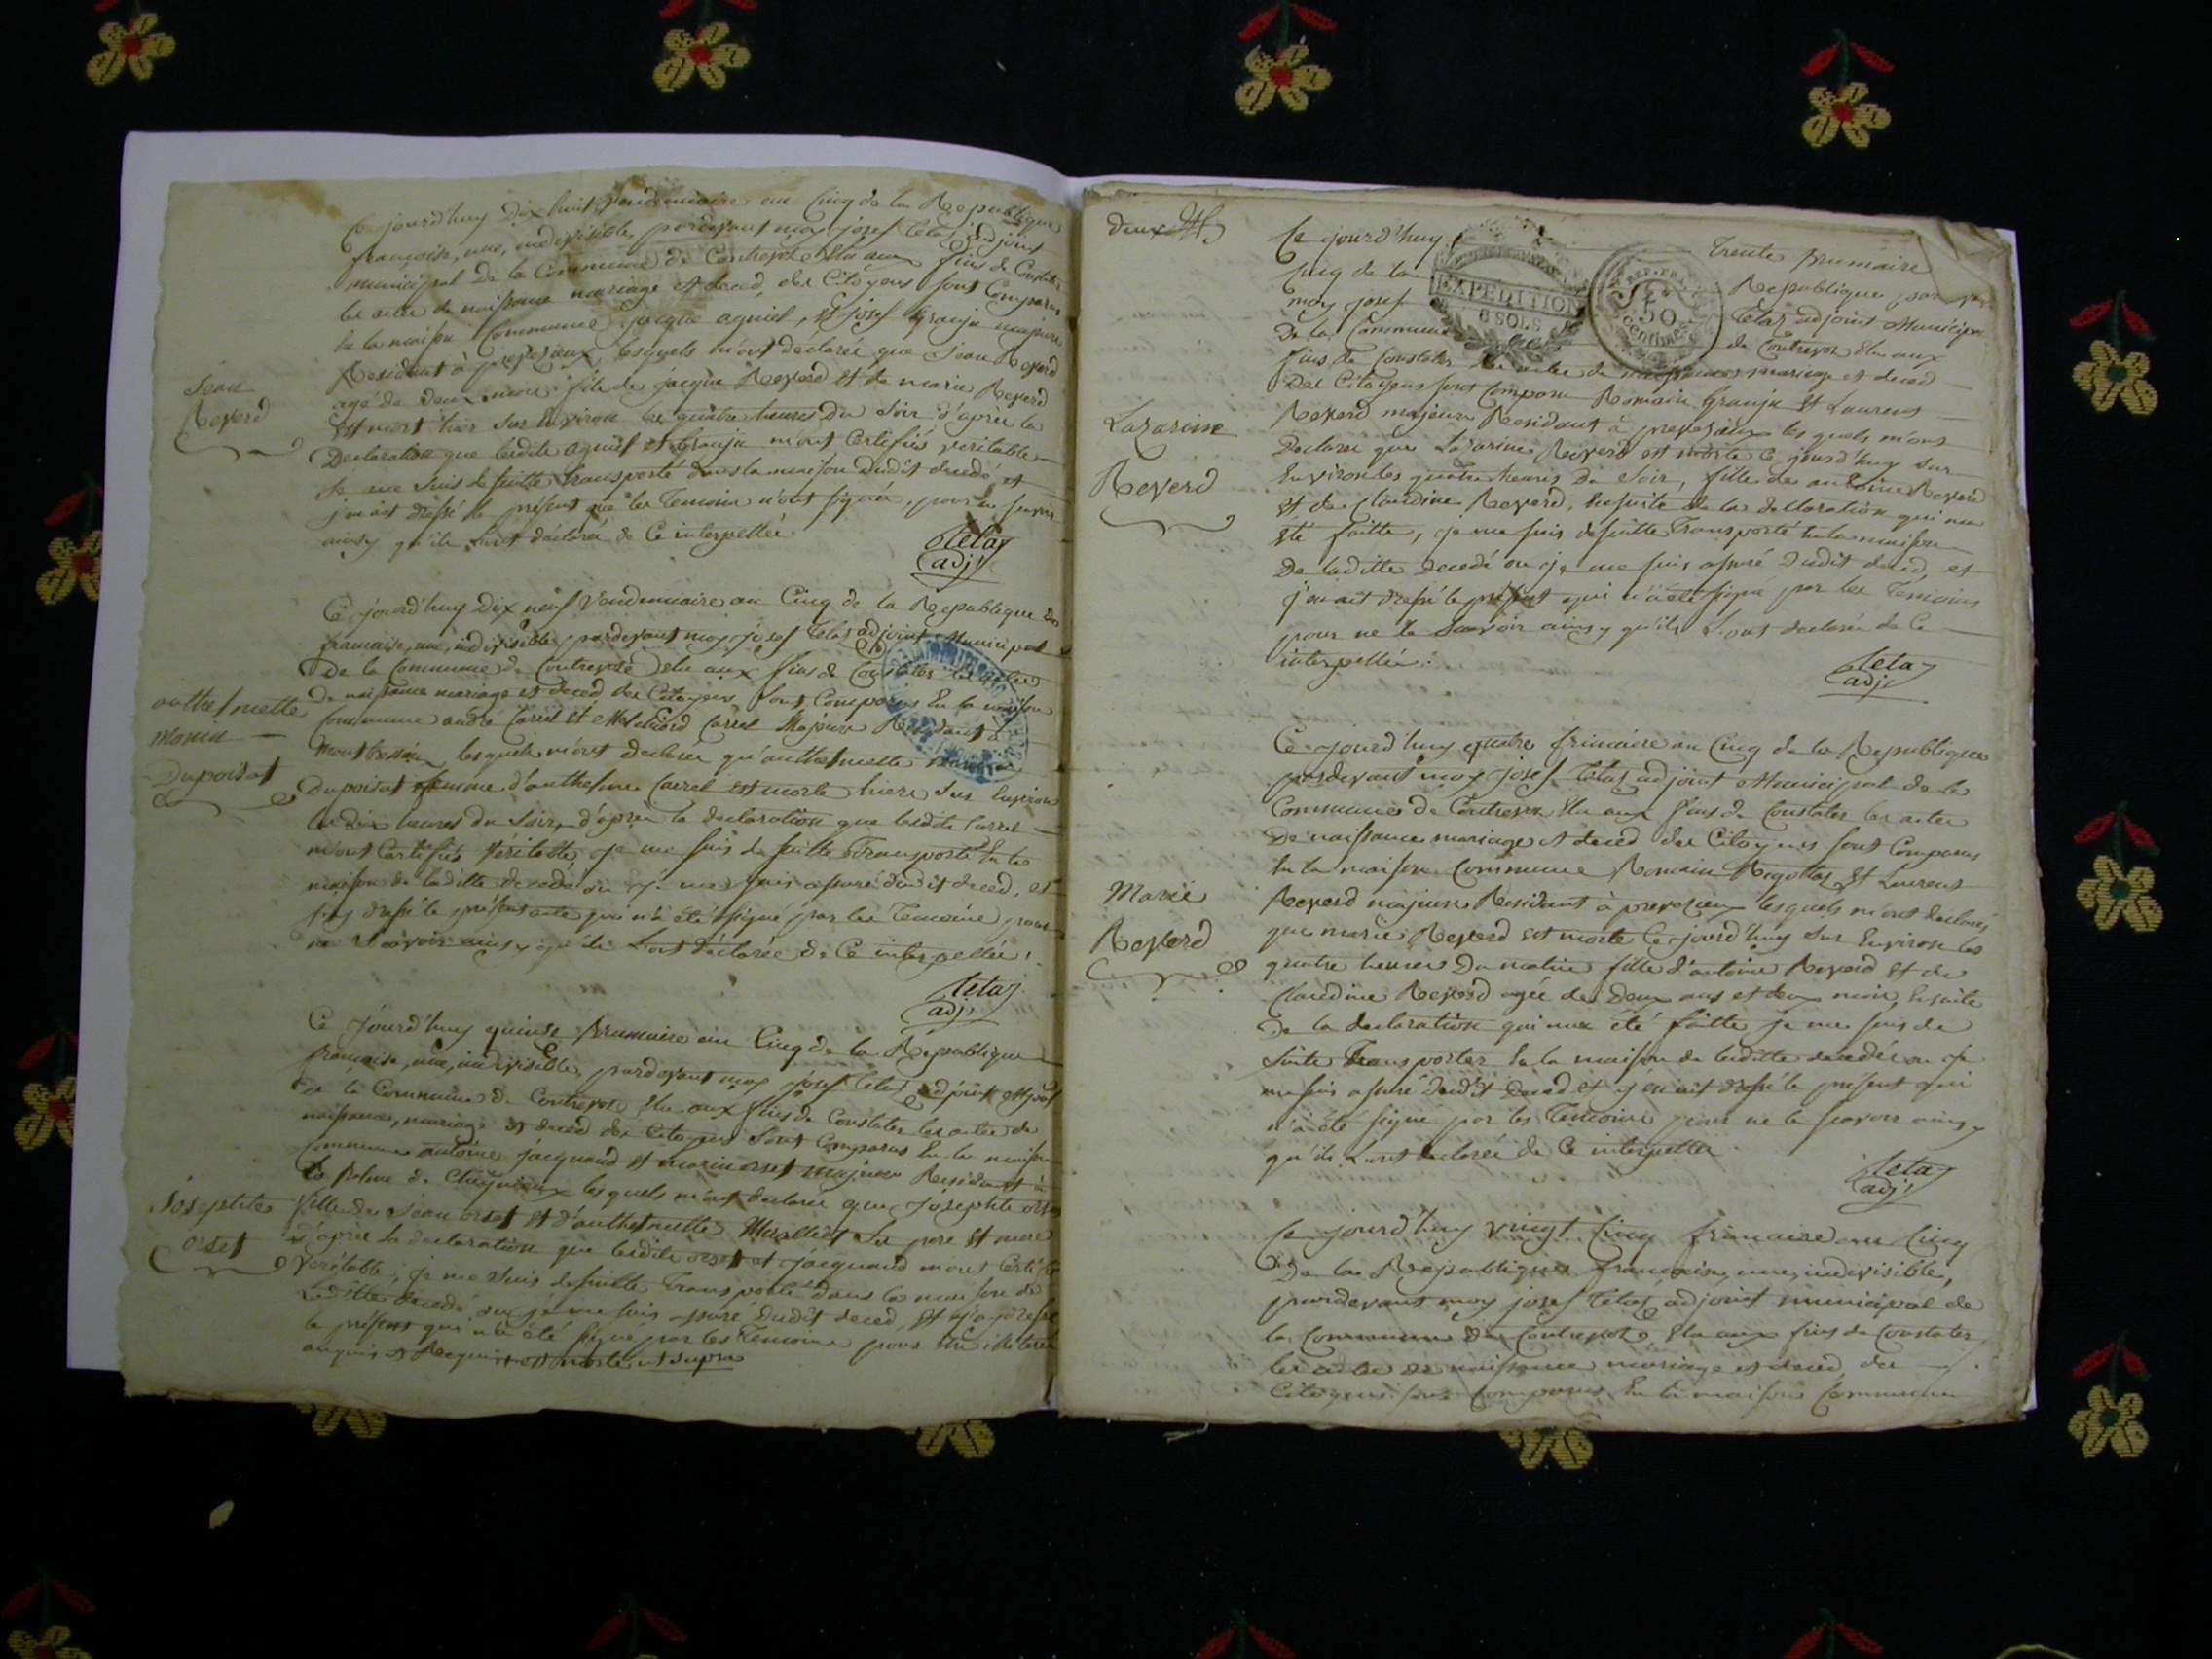 Ce jourd'huy Dix huit Vendémiaire an Cinq de la Republique
françoise, une, indivisible, pardevant moy josef Tetaz adjoint
municipal De la Commune de Contrevoz Elu aux fins de Constater
les actes de naissance mariage et deced, des Citoyens sont Comparus
la maison Commune jacque agniel, et josef Granju majeurs
Residant à preveyzieux lesquels m'ont declarée que Jean Reverd
agé de Deux mois fils de jacque Reverd et de marie Reverd
Est mort hier sur Environ les quatre heures du Soir d'après la
Declaration que ledits agniel et Granju m'ont Certifiés veritable
je me Suis de suitte transporté dans la maison dudit decedé et
j'en ait dressé le présent que les Temoins n'ont signée, pour ne savoir
ainsy qu'ils L'ont déclarée de Ce interpellée
Tetaz
adj
Jean
Reverd
Ce jourd'huy Dix neuf Vendemiaire an Cinq de la Republique
francaise, une, indivisible pardevant moy josef Tetaz adjoint Municipal
De la Commune de Contrevoz Elu aux fins de Constater les actes
De naissance mariage et deced des Citoyens sont Comparus En la maison
Commune andré Carrel et Carrel Majeur Residant à
lesquels m'ont declaree qu'anthelmette
Dupoisat femme d'anthelme Carrel est morte hiere Sur Environ
les dix heures du Soir, d'après la declaration que ledits Carrel
m'ont Certifiés Véritable je me suis de suitte Transporté En la
maison de laditte decedé ou je me suis assuré dudit deced, et
j'ay dressé le présent acte qui n'à été signé par les Temoins pour
ne Savoir ainsy qu'ils L'ont déclarée de Ce interpellée.
Tetaz
adj
anthelmette
Dupoisat
Ce jourd'huy quinse Brumaire an Cinq de la Republique
francaise, une, indivisible, pardevant moy josef Tetaz adjoint
de la Commune de Contrevoz Elu aux fins de Constater les actes de
naissance, mariage et deced des Citoyens Sont Comparus En la maison
Commune antoine jacquand et marin orset majeur Residant à
la Balme de lesquels m'ont declarée que Josephte orset
fille de Jean orset et d'anthelmette Su pere et mere
d'après la declaration que ledits orset et jacquand m'ont Certifié
Véritable, je me Suis de suitte Transporté dans la maison de
Laditte decedé ou je me suis assuré dudit deced, et
le présent qui n'a été signé par les Temoins pour
enquis et Requis est morte ut supra
Josephte
orset
Deux
Ce jourd'huy Trente Brumaire
Cinq de la Republique par
moy josef Tetaz adjoint Municipa
De la Commune de Contrevoz Elu aux
EXPEDITION
6 SOLS
REP. FRA.
50
Centimes
fins de Constater les actes de naissance mariage et deced
Des Citoyens sont Comparu Romain Granju et Laurens
Reverd majeurs Residant à preveyzieux les quels m'ont
Declaree que Lazarine Reverd est morte Ce jourd'huy Sur
Environ les quatre heures Du Soir, fille de antoine Reverd
et de Claudine Reverd, Ensuite de la declaration qui ma
Eté faitte, je me suis de suitte Transporté En la maison
De laditte decedé ou je me suis assuré dudit deced et
j'en ait dressé le présent qui n'à été signé par les Témoins
pour ne le Savoir ainsy qu'ils L'ont declarée de Ce
interpellée.
Tetaz
adj
Lazarine
Reverd
Ce jourd'huy quatre frimaire an Cinq de la Republique
pardevant moy josef Tetaz adjoint Municipal de la
Commune de Contrevoz Elu aux fins de Constater les actes
De naissance mariage et deced des Citoyens sont Comparus
En la maison Commune Romain Rigollaz et Laurens
Reverd majeur Residant à preveyzieux lesquels m'ont declarés
que marie Reverd est morte Ce jourd'huy Sur Environ les
quatre heures Du matin fille d'antoine Reverd et de
Claudine Reverd agée de Deux ans et deux mois, Ensuite
De la declaration qui ma été faitte je me suis de
suite Transporter En la maison de laditte decedée ou je
me suis assuré dudit deced et j'en ait dressé le présent qui
n'à été signé par les Temoins pour ne le savoir ainsy
qu'ils L'ont declarée de Ce interpellée.
Tetaz
adj
Marie
Reverd
Ce jourd'huy vingt Cinq frimaire an Cinq
De la Republique francaise une, indivisible,
pardevant moy josef Tetaz adjoint municipal de
la Commune De Contrevoz, Elu aux fins de Constater
les actes de naissance mariage et deced des
Citoyens sont comparus En la maison Commune